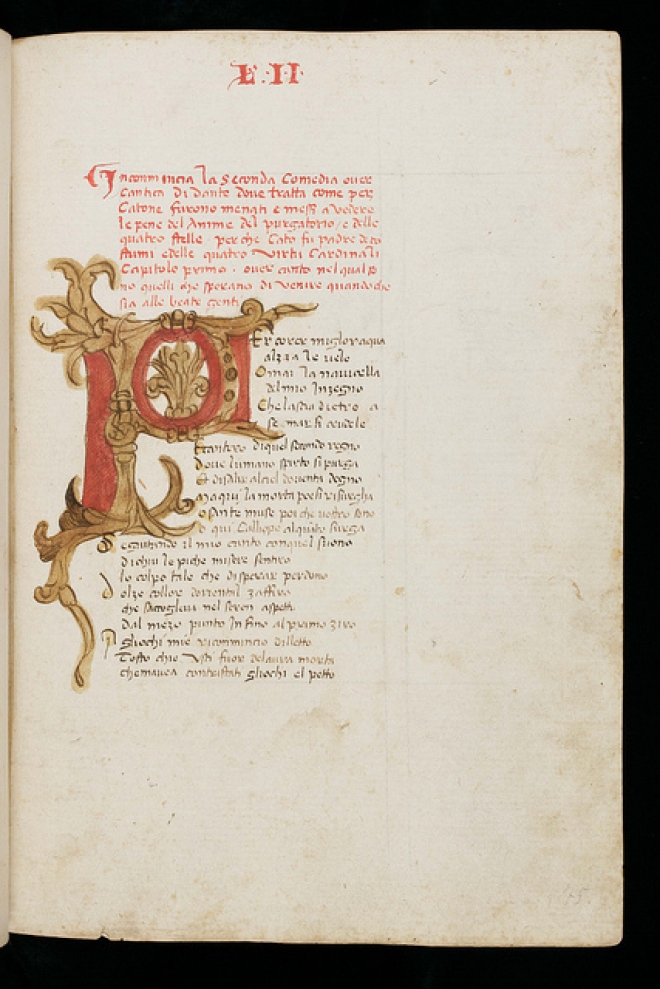 L·II
Incomincia la Seconda Comedia over
Cantica di dante dove tratta come per
Catone furono menati e messi a vedere
le pene del Anime del purgatorio / e delle
quatro stelle / perche Cato fu padre di co
stumi e delle quatro virtu Cardinali
Capitolo primo · over canto nel qual p
no quelli che sperano di venire quandoche
sia alle beate genti
Er corer miglor aqua
alzza le vele
Omai la navicella
del mio Inzegno
Che lascia dietro a
se mar si crudele
E cantero di quel secondo regno
dove lumano spirto si purga
E di salir al ciel doventa degno
Ma qui la morta poesi risurgha
o sante muse poi che vostro sono
e qui Calliope alquanto surga
Seguitando il mio canto con quel suono
di chui le piche misere sentiro
lo colpo tale che disperar perdono
dolze collor dorrentil zaffiro
che saccoglieva nel seren aspetto
dal mezo punto Infino al primo ziro
Agliochi miei ricommincio diletto
Tosto chio usti fuor de laura morta
che mavea contristati gliochi el petto